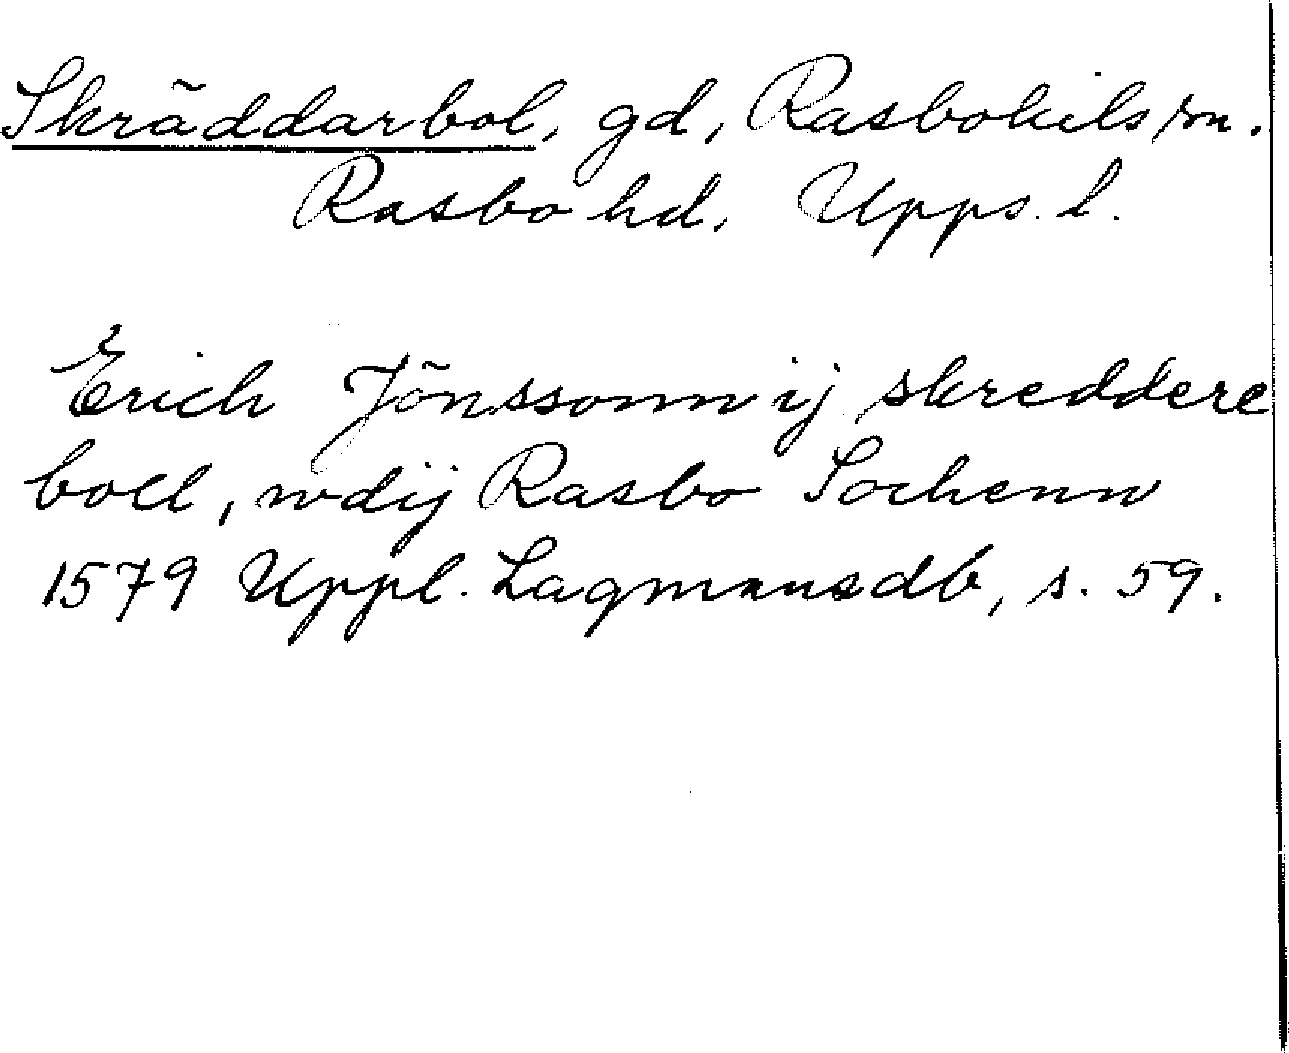 Skräddarbol, gd, Rasbokils sn.
Rasbo hd, Upps. l.
Erich Jönssonn ij skreddere
boll, wdij Rasbo Sochenn
1579 Uppl. Lagmansdb, s. 59.